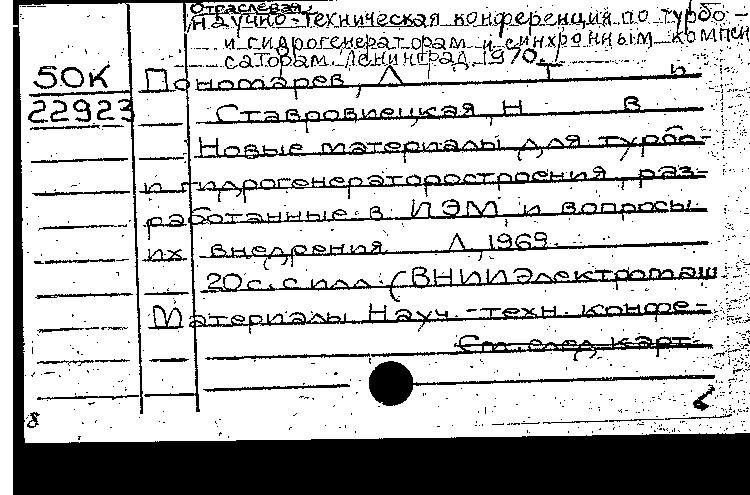 Отраслевая
научно-техническая конференция по турбо-
и гидрогенераторам и синхронным компен
саторам. Ленинград, 1970.
50К Пономарев, Л Т и
22923 Ставровиецкая, Н В
Новые материалы для турбо-
и гидрогенераторостроения, раз-
работанные в ИЭМ, и вопросы
их внедрения Л, 1969.
20 с. с илл. (ВНИИЭлектромаш
Материалы Науч.-техн. конфе-
См. след. карт.
8